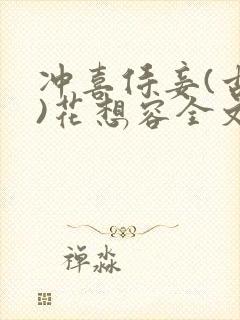 冲喜侍妾(古
)花想容全文
禅淼